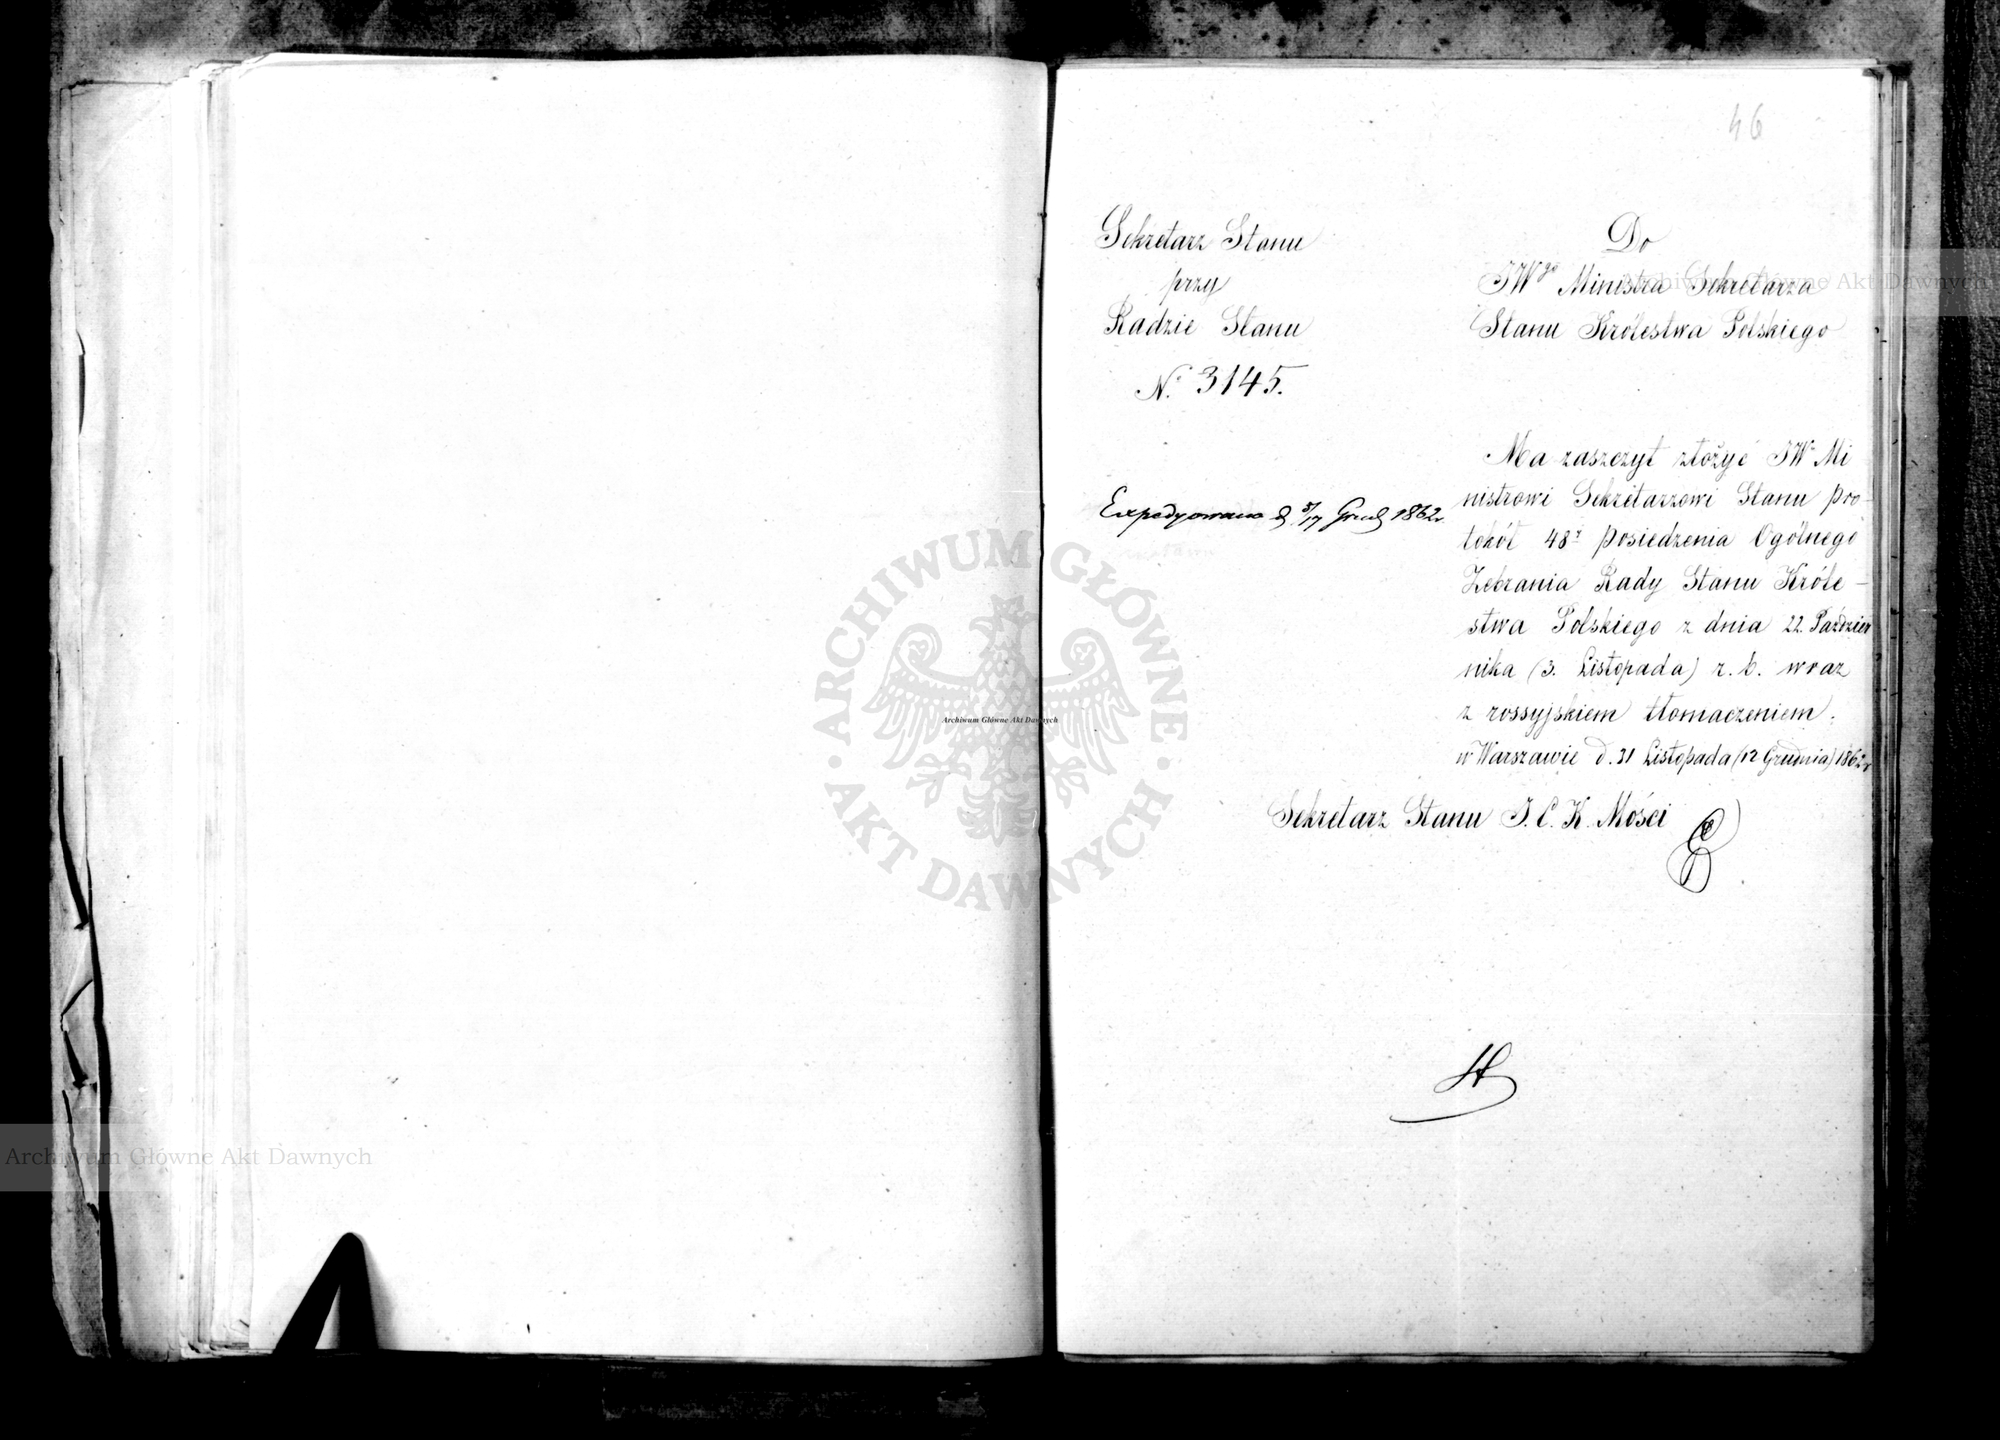 46
Sekretarz Stanu
przy
Radzie Stanu
No 3145.
Do
JWgo Ministra Sekretarza
Stanu Królestwa Polskiego
Expedyowano d. 5/17 Grud 1862r.
Ma zaszczyt złożyć JW. Mi
nistrowi Sekretarzowi Stanu pro-
tokół 48º posiedzenia Ogólnego
Zebrania Rady Stanu Króle-
stwa Polskiego z dnia 22. Paździer
nika (3. Listopada) r. b. wraz
z rossyjskiem tłomaczeniem.
w Warszawie d. 31 Listopada (12 Grudnia) 1862 r
Sekretarz Stanu J. C. K. Mości
ARCHIWUM GŁÓWNE
AKT DAWNYCH
Archiwum Główne Akt Dawnych
Archiwum Główne Akt Dawnych
Archiwum Główne Akt Dawnych